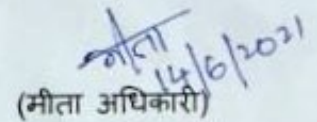 मीता
14/6/2021
(मीता अधिकारी)